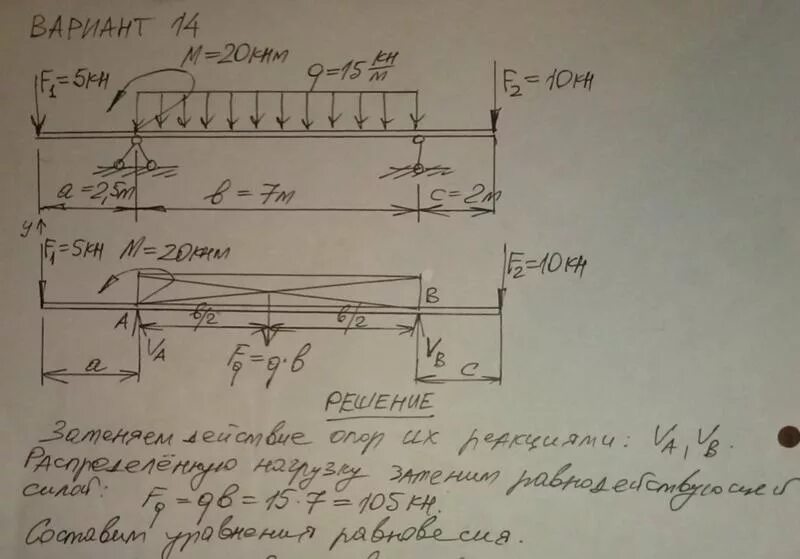 ВАРИАНТ 14
M=20кнм
q=15 кн/м
F₁=5кн
F₂=10кн
a=2,5м
в=7м
c=2м
y
F₁=5кн
M=20кнм
F₂=10кн
A
B
в/2
в/2
V_A
F_q=q·в
V_B
a
c
РЕШЕНИЕ
Заменяем действие опор их реакциями: V_A, V_B.
Распределённую нагрузку заменим равнодействующей
силой: F_q = qв = 15·7 = 105 кн.
Составим уравнения равновесия.